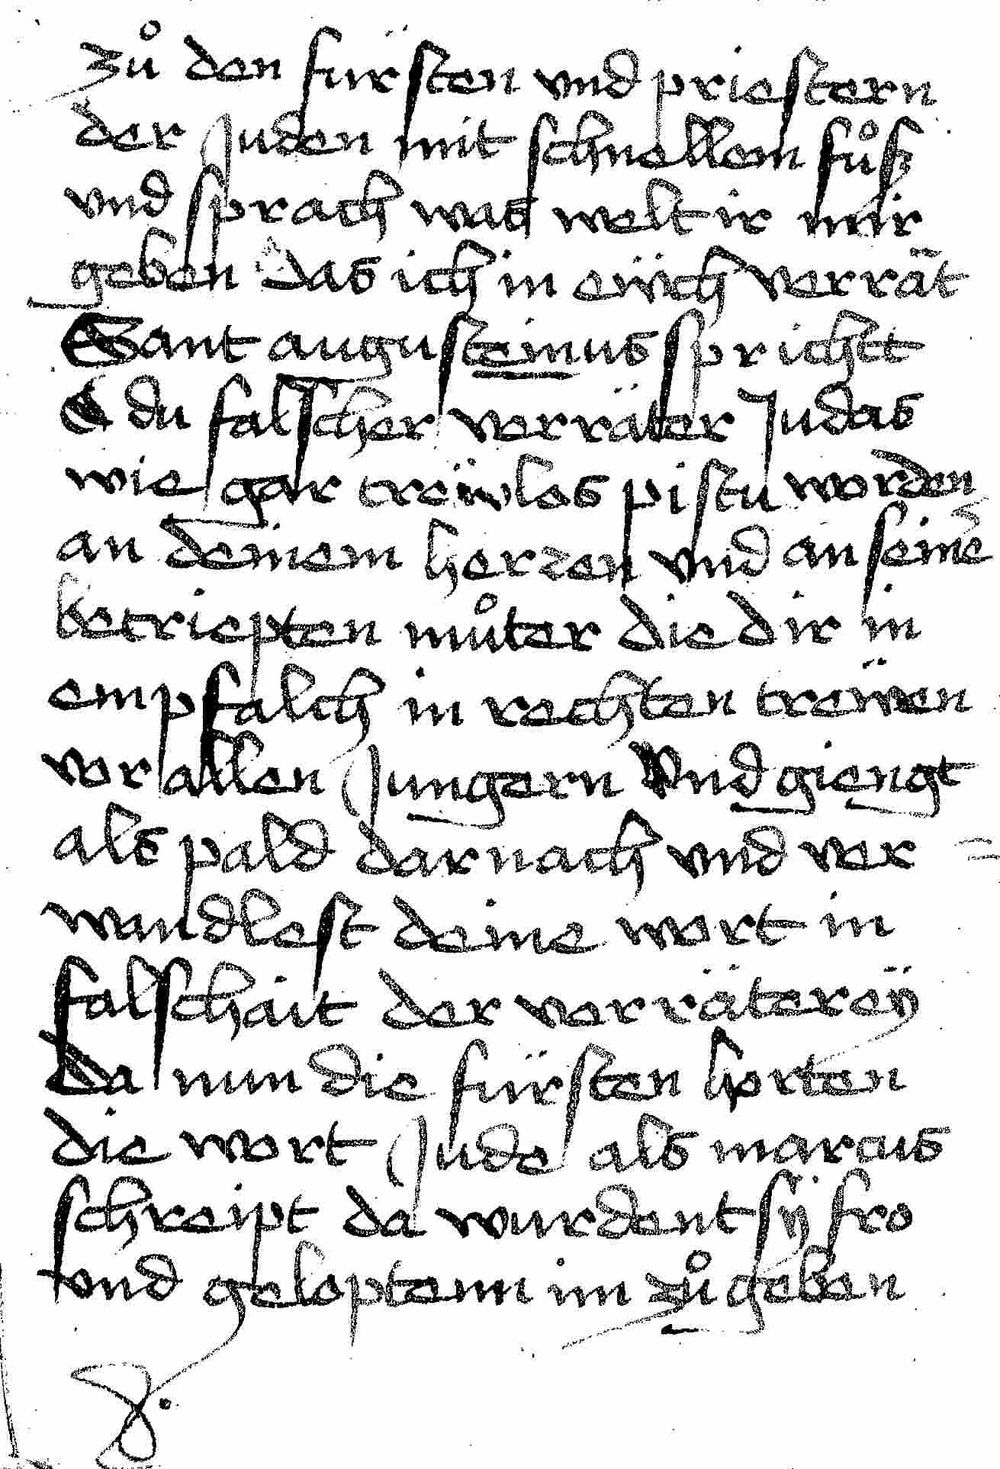 zů den fürsten vnd priestern
der Juden mit schnellem fůß
vnd sprach was welt ir mir
geben das ich in eüch verrät
Sant augusteinus sprichtt
O du falscher verräter Judas
wie gar treẅlos pistu worden
an deinem herzen vnd an seinē
betriepten můter die dir in
empfalch in rechten treẅen
vor allen Jungern Vnd giengt
als pald darnach vnd ver
wandlest deine wort in
falschait der verräterey
Da nun die fürsten horten
die wort Jude als marcus
schreipt da wurdent sÿ fro
vnd geloptenn im zů geben